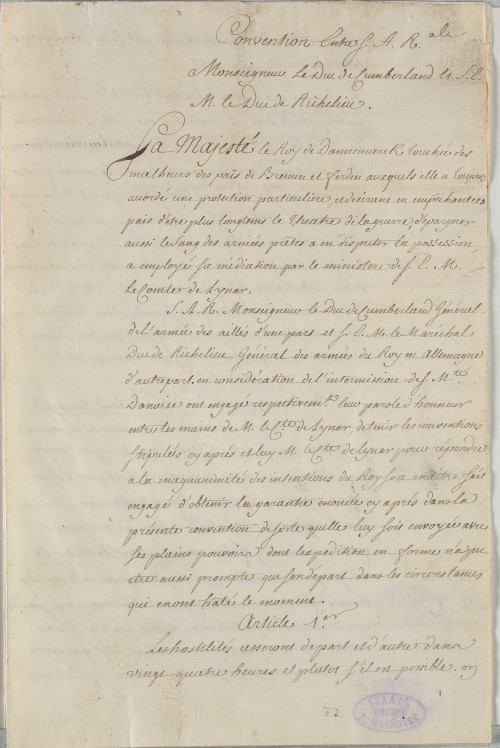 Convention Entre S. A. R.ale
Monseigneur Le Duc de Cumberland et S. E.
M. le Duc de Richelieu.
Sa Majesté le Roy de Dannemarck touchée des
malheurs des païs de Bremen et ferden auxquels elle a toujours
acordé une protection particuliere, et désirant en empechant ces
païs d'être plus longtems le Theatre de la guerre, d'épargner
aussi le sang des armées prêtes a en disputer la possession,
a employé sa médiation par le ministere de S. E. M.
Le Comte de Lynar.
S. A. R. Monseigneur le Duc de Cumberland Général
de l'armée des alliés d'une part et S. E. M. le Maréchal
Duc de Richelieu Général des armées du Roy en Allemagne
d'autre part, en considération de l'intermission de S. M.té
Danoise ont engagé respectivem.t leur parole d'honneur
entre les mains de M. le C.te de Lynar, de tenir les conventions
stipulés cy après et luy M. le C.te de Lynar pour répondre
a la magnanimité des intentions du Roy son maitre s'est
engagé d'obtenir la garantie énoncée cy après dans la
présente convention de sorte quelle luy sois envoyée avec
ses plains pouvoirs dont l'expédition en forme n'a pu
etre aussi prompte que son départ dans les circonstances
qui en ont haté le moment.
Article 1.er
Les hostilités cesseront de part et d'autre dans
vingt quatre heures et plutôt s'il est possible. on
72
STAATS
ARCHIV
HANNOVER